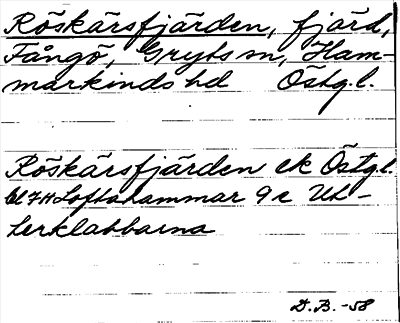 Röskärsfjärden, fjärd,
Fångö, Gryts sn, Ham-
markinds hd Östg.l.
Röskärsfjärden ek Östg.l.
bl 7H Loftahammar 9 c Ut-
terklabbarna
D.B. -58